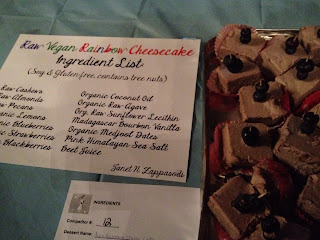 Raw Vegan Rainbow Cheesecake
Ingredient List
(Soy & Gluten-free, contains tree nuts)
Raw Cashews
Raw Almonds
Raw Pecans
Lemons
Blueberries
Strawberries
Blackberries
Organic Coconut Oil
Organic Raw Agave
Org. Raw Sunflower Lecithin
Madagascar Bourbon Vanilla
Organic Medjool Dates
Pink Himalayan Sea Salt
Beet Juice
Janet N.
INGREDIENTS
Competitor #: 12
Dessert Name: